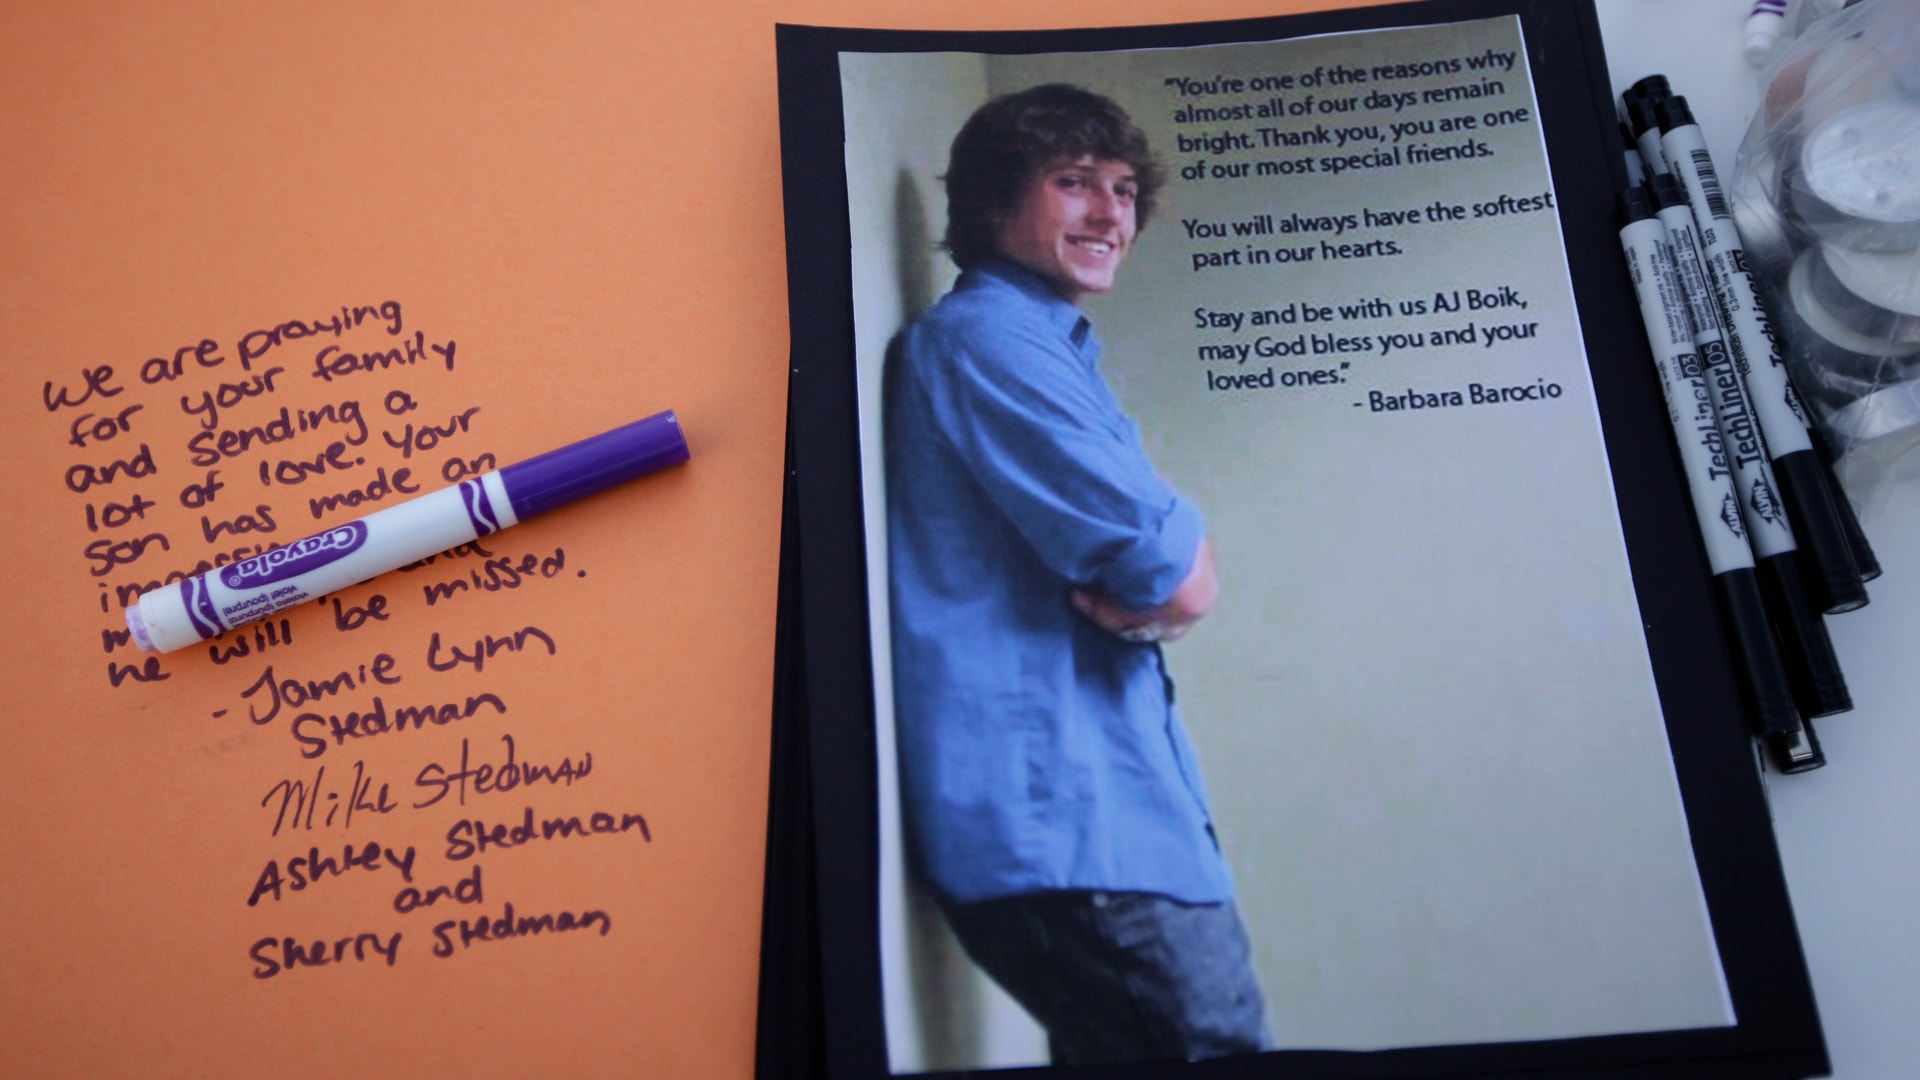 We are praying
for your family
and sending a
lot of love. Your
son has made an
and
he will be missed.
- Jamie Lynn
Stedman
Mike Stedman
Ashley Stedman
and
Sherry Stedman
Crayola®
"You're one of the reasons why
almost all of our days remain
bright. Thank you, you are one
of our most special friends.
You will always have the softest
part in our hearts.
Stay and be with us AJ Boik,
may God bless you and your
loved ones."
- Barbara Barocio
TechLiner 03
ALVIN
TechLiner 05
ALVIN
TechLiner